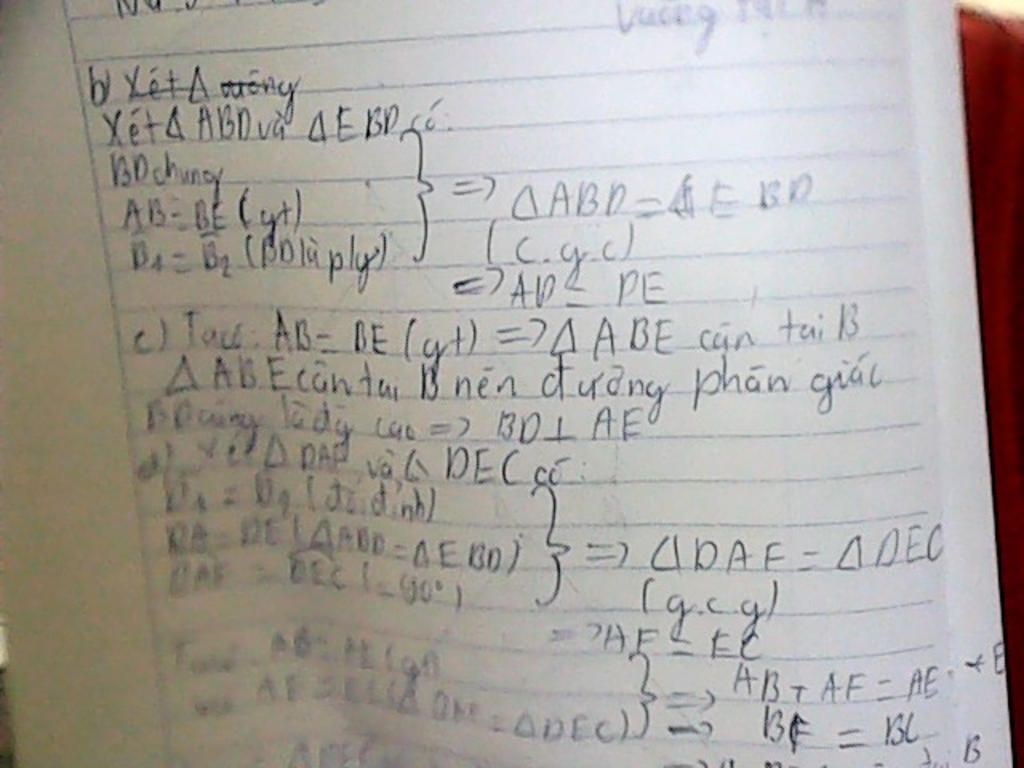 vuông tại A
b) Xét Δ vuông
Xét Δ ABD và ΔEBD có:
BD chung
AB = BE (gt) => ΔABD = Δ EBD
B1 = B2 (BD là p/g) (c.g.c)
=> AD = DE
c) Ta có: AB = BE (gt) => Δ ABE cân tại B
Δ ABE cân tại B nên đường phân giác
BD cũng là đg cao => BD ⊥ AE
d) Xét Δ DAF và Δ DEC có:
D1 = D2 (đối đỉnh)
DA = DE (ΔABD = ΔEBD) => ΔDAF = ΔDEC
DAF = DEC (=90°) (g.c.g)
=> AF = EC
Ta có: AB = BE (gt)
AF = EC (Δ DAF = ΔDEC) => AB + AF = AE + E
=> BF = BC
B